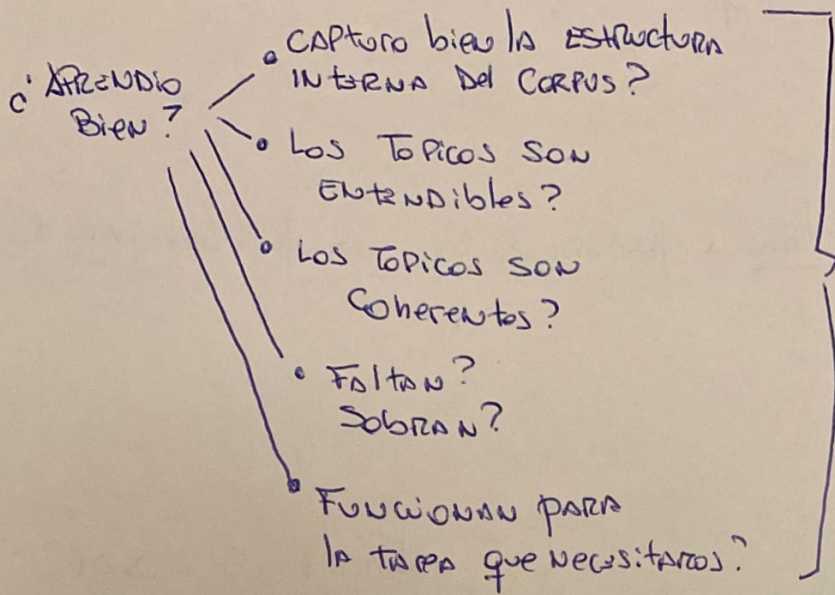 ¿APRENDIO
Bien?
CAPturo bien lA EStRuctURA
INtERNA Del CORPUS?
Los Topicos SON
ENtENDibles?
Los Topicos SON
Coherentes?
FAltAN?
SobRAN?
FuncioNAN pARA
lA tAReA que Necesitamos?